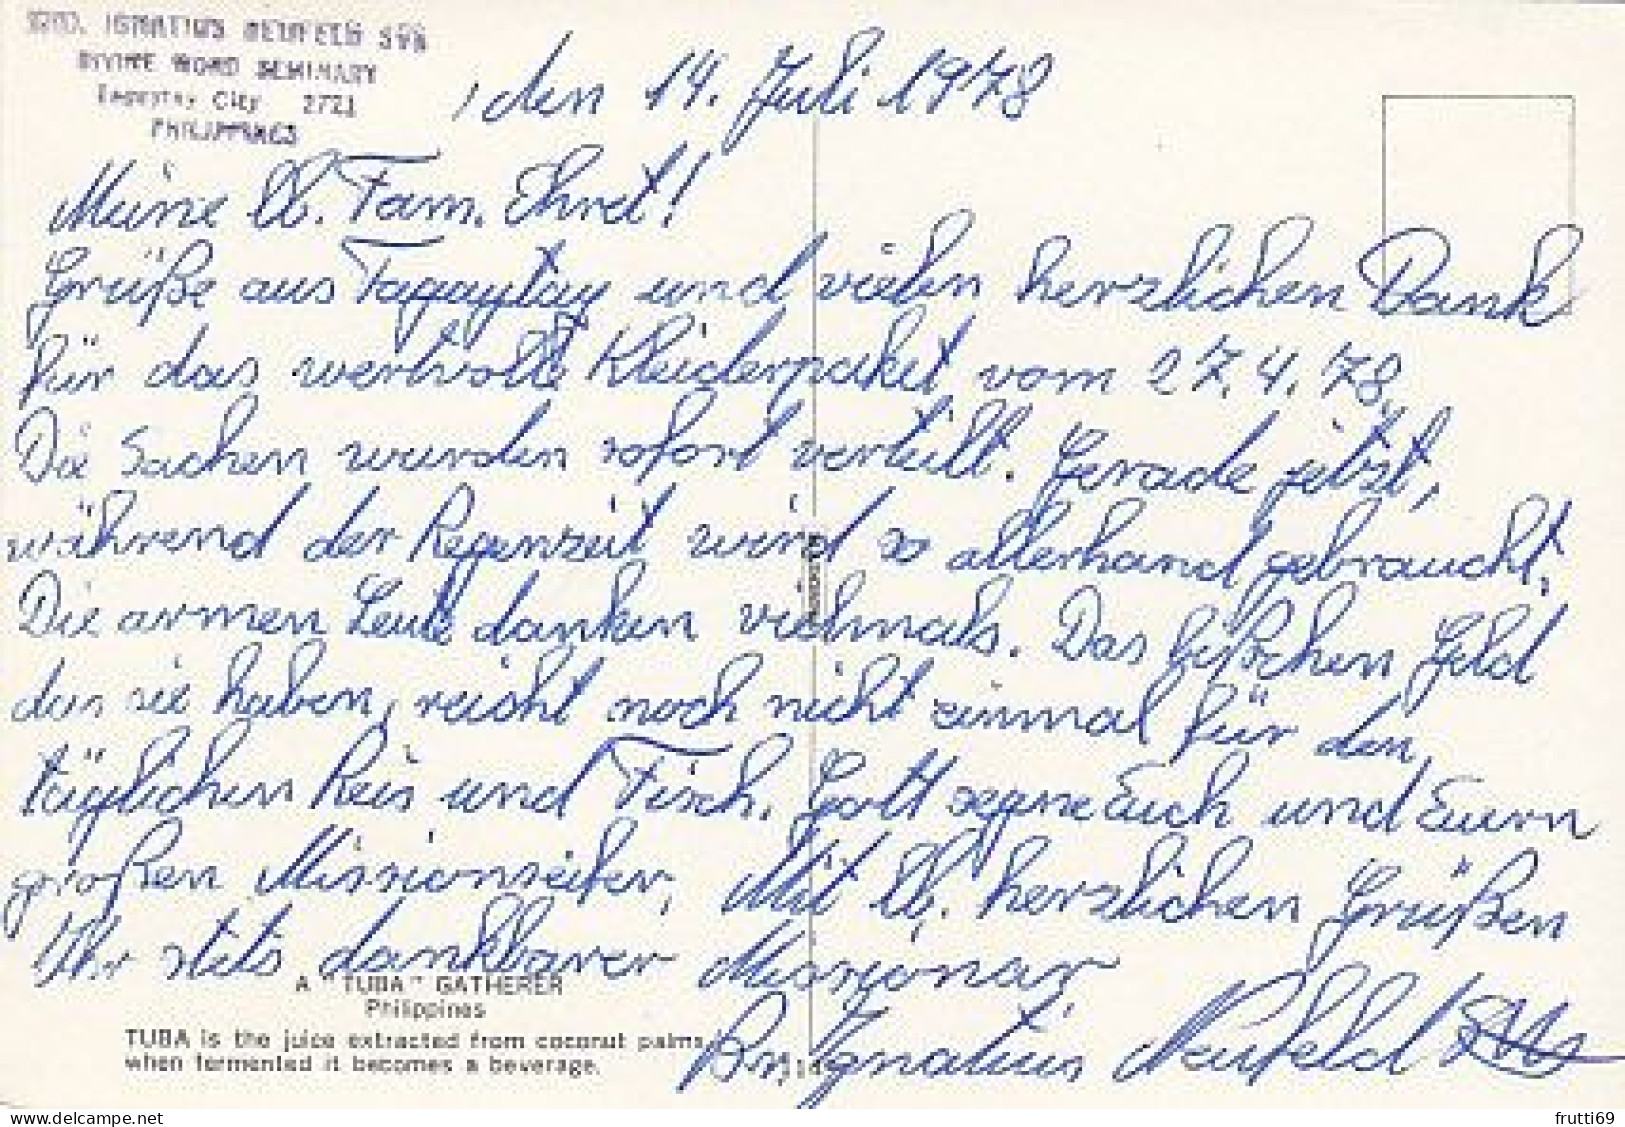 BRO. IGNATIUS NEUFELD SVD
DIVINE WORD SEMINARY
Tagaytay City 2721
PHILIPPINES
, den 14. Juli 1978
Meine lb. Fam. Ehret!
Grüße aus Tagaytay und vielen herzlichen Dank
für das wertvolle Kleiderpaket vom 27.4.78.
Die Sachen wurden sofort verteilt. Gerade jetzt,
während der Regenzeit wird so allerhand gebraucht.
Die armen Leute danken vielmals. Das bißchen Geld
das sie haben, reicht noch nicht einmal für den
täglichen Reis und Fisch. Gott segne Euch und Euern
großen Missionseifer. Mit lb. herzlichen Grüßen
Ihr stets dankbarer Missionar
Br. Ignatius Neufeld SVD
A "TUBA" GATHERER
Philippines
TUBA is the juice extracted from coconut palms,
when fermented it becomes a beverage.
frutti69